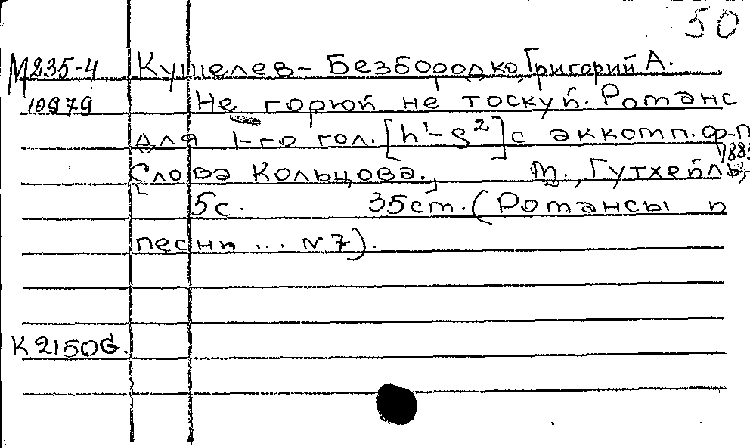 50
М235-4 Кушелев-Безбородко, Григорий А.
10979 Не горюй не тоскуй. Романс
для 1-го гол. [h¹-g²] с аккомп. ф-п
Слова Кольцова., М., Гутхейль,
5с. 35ст. (Романсы и
песни ... N7).
К 2150